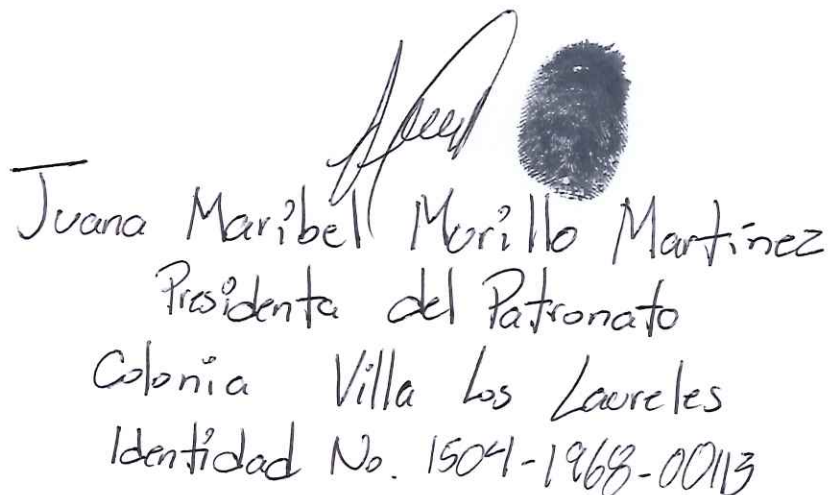 Juana Maribel Murillo Martínez
Presidenta del Patronato
Colonia Villa Los Laureles
Identidad No. 1504-1968-00113